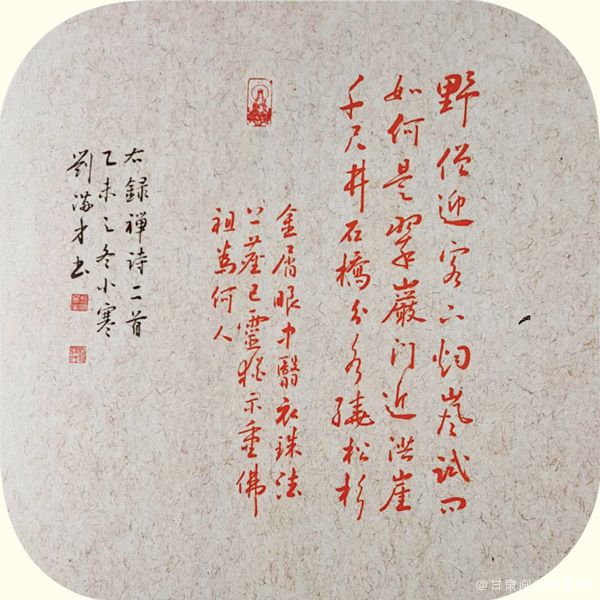 野僧迎客下烟嵐試问
如何是翠巖门近洪崖
千尺井石橋分水繞松杉
金屑眼中翳衣珠法
上塵己靈猶不重佛
祖為何人
右録禅诗二首
乙未之冬小寒
劉满才书
@甘肃画